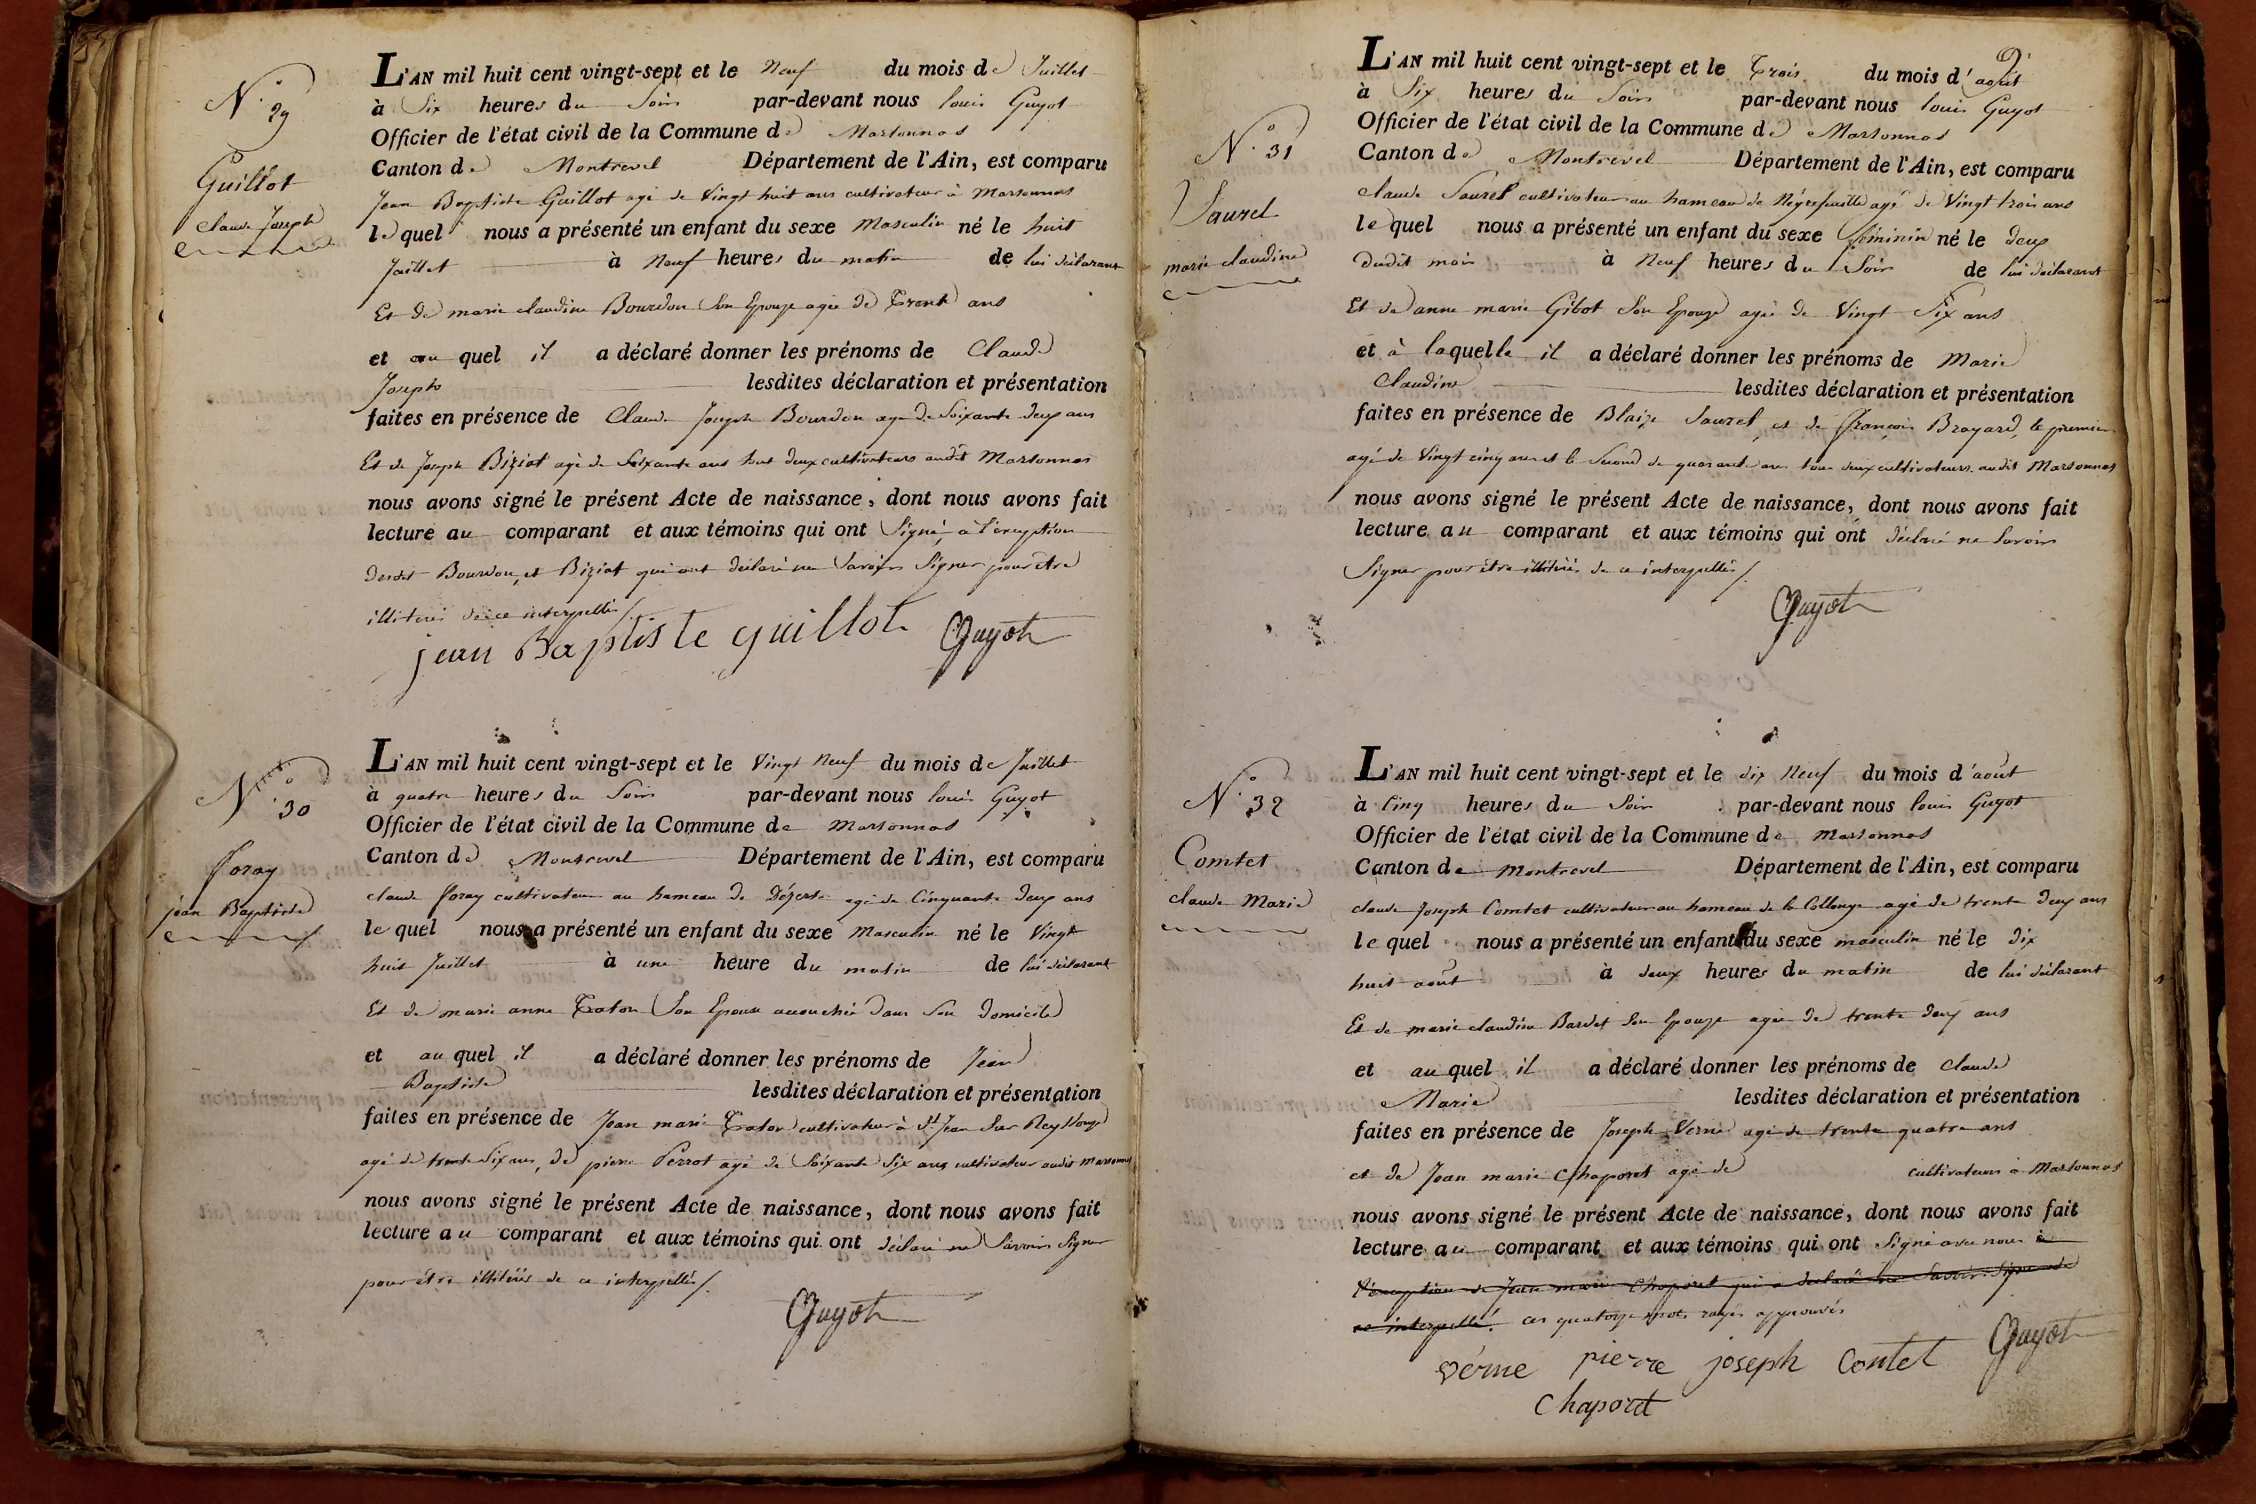 N.º 29
Guillot
Claude Joseph
L'AN mil huit cent vingt-sept et le Neuf du mois de Juillet
à Six heures du Soir par-devant nous louis Guyot
Officier de l'état civil de la Commune de Marsonnas
Canton de Montrevel Département de l'Ain, est comparu
Jean Baptiste Guillot agé de Vingt huit ans cultivateur à Marsonnas
lequel nous a présenté un enfant du sexe Masculin né le huit
Juillet à Neuf heures du matin de lui déclarant
Et de marie claudine Bourdon Son Epouze agée de Trente ans
et auquel il a déclaré donner les prénoms de Claude
Joseph lesdites déclaration et présentation
faites en présence de Claude Joseph Bourdon agé de Soixante deux ans
Et de Joseph Biziat agé de Soixante ans tout deux cultivateurs audit Marsonnas
nous avons signé le présent Acte de naissance, dont nous avons fait
lecture au comparant et aux témoins qui ont Signé, à l'éxception
desdit Bourdon, et Biziat qui ont déclaré ne Savoir Signer pour être
illitérés de ce interpellés
jean Baptiste guillot Guyot
N.º 30
Foray
jean Baptiste
L'AN mil huit cent vingt-sept et le Vingt Neuf du mois de Juillet
à quatre heures du Soir par-devant nous louis Guyot
Officier de l'état civil de la Commune de Marsonnas
Canton de Montrevel Département de l'Ain, est comparu
claude foray cultivateur au hameau de Dézerte agé de Cinquante deux ans
lequel nous a présenté un enfant du sexe Masculin né le Vingt
huit Juillet à une heure du matin de lui déclarant
Et de marie anne Traton Son Epouse accouchée dans Son domicile
et auquel il a déclaré donner les prénoms de Jean
Baptiste lesdites déclaration et présentation
faites en présence de Jean marie Traton cultivateur à St Jean Sur Reyssouze
agé de trente Six ans, de pierre Perrot agé de Soixante Six ans cultivateur audit Marsonnas
nous avons signé le présent Acte de naissance, dont nous avons fait
lecture au comparant et aux témoins qui ont déclaré ne Savoir Signer
pour être illitérés de ce interpellés
Guyot
N.º 31
Saurel
marie claudine
L'AN mil huit cent vingt-sept et le Trois du mois d'août
à Six heures du Soir par-devant nous louis Guyot
Officier de l'état civil de la Commune de Marsonnas
Canton de Montrevel Département de l'Ain, est comparu
claude Saurel cultivateur au hameau de Négrefeuille agé de Vingt trois ans
lequel nous a présenté un enfant du sexe féminin né le deux
dudit mois à Neuf heures du Soir de lui déclarant
Et de anne marie Gibot Son Epouze agée de Vingt Six ans
et à laquelle il a déclaré donner les prénoms de Marie
Claudine lesdites déclaration et présentation
faites en présence de Blaize Saurel, et de françois Brayard, le premier
agé de Vingt cinq ans et le Second de quarante ans tous deux cultivateurs audit Marsonnas
nous avons signé le présent Acte de naissance, dont nous avons fait
lecture au comparant et aux témoins qui ont déclaré ne Savoir
Signer pour être illitérés de ce interpellés
Guyot
N.º 32
Comtet
claude Marie
L'AN mil huit cent vingt-sept et le dix Neuf du mois d'août
à Cinq heures du Soir par-devant nous louis Guyot
Officier de l'état civil de la Commune de Marsonnas
Canton de Montrevel Département de l'Ain, est comparu
claude Joseph Comtet cultivateur au hameau de la Collonge agé de trente deux ans
lequel nous a présenté un enfant du sexe masculin né le dix
huit août à deux heures du matin de lui déclarant
Et de marie claudine Bardet Son Epouze agée de trente deux ans
et auquel il a déclaré donner les prénoms de Claude
Marie lesdites déclaration et présentation
faites en présence de Joseph Verne agé de trente quatre ans
et de Jean marie Chaporet agé de cultivateurs à Marsonnas
nous avons signé le présent Acte de naissance, dont nous avons fait
lecture au comparant et aux témoins qui ont Signé avec nous à
l'éxception de Jean marie Chaporet qui a déclaré ne Savoir Signer de
ce interpellé. ces quatorze mots rayés approuvés
vérne pierre joseph Contet Guyot
Chaporet